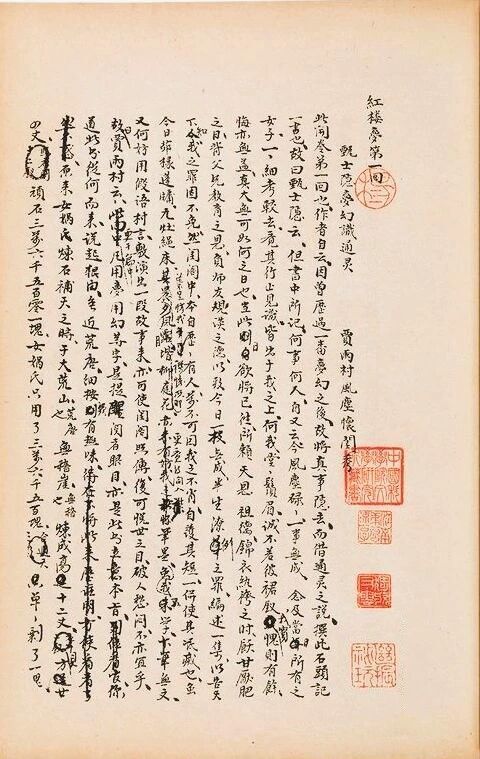 紅楼夢第一回
甄士隐夢幻識通灵 賈雨村風塵懷閨秀
此開卷第一回也作者自云因曾歷過一番夢幻之後故將真事隐去而借通灵之說撰此石頭記
一書也故曰甄士隐云、但書中所记何事何人自又云今風塵碌、一事無成 念及當日所有之
女子一、細考較去竟其行止見識皆出于我之上何我堂、鬚眉诚不若彼裙釵我實愧則有餘
悔亦無益真大無可如何之日也当此則自欲將已往所賴天恩 祖德錦衣紈袴之时飫甘饜肥
之日背父兄教育之恩負师友規谈之德以致今日一技无成半生潦倒之罪编述一集以告天
下人知我之罪固不免然閨阁中本自歷、有人萬不可因我之不肖自護其短一併使其泯滅也虽
今日茅椽蓬牖瓦灶绳床其晨夕風露階柳庭花 筆墨虽我未学下筆無文
又何妨用假语村言敷演出一段故事来亦可使閨阁照傳復可悦世之目破人愁闷不亦宜乎、
故曰賈雨村云、此回中凡用夢用幻等字是提醒閱者眼目亦是此书立意本旨列位看官你
道此书從何而来说起根由虽近荒唐细按則有趣味待在下將此来歷註明方使看者了
然不惑原来女媧氏煉石補天之時于大荒山無稽崖煉成高逕十二丈方逕廿
四丈頑石三萬六千五百零一塊女媧氏只用了三萬六千五百塊只單、剩了一塊